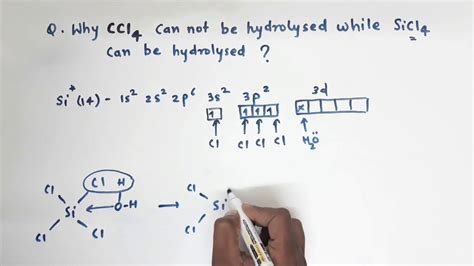 Q. Why CCl4 can not be hydrolysed while SiCl4
can be hydrolysed ?
Si*(14) - 1s² 2s² 2p⁶ 3s² 3p² 3d
1 1 1 1 x
↑ ↑ ↑ ↑ ↑
Cl Cl Cl Cl H2Ö
Cl Cl H Cl
Si ← O-H → Si
Cl Cl Cl